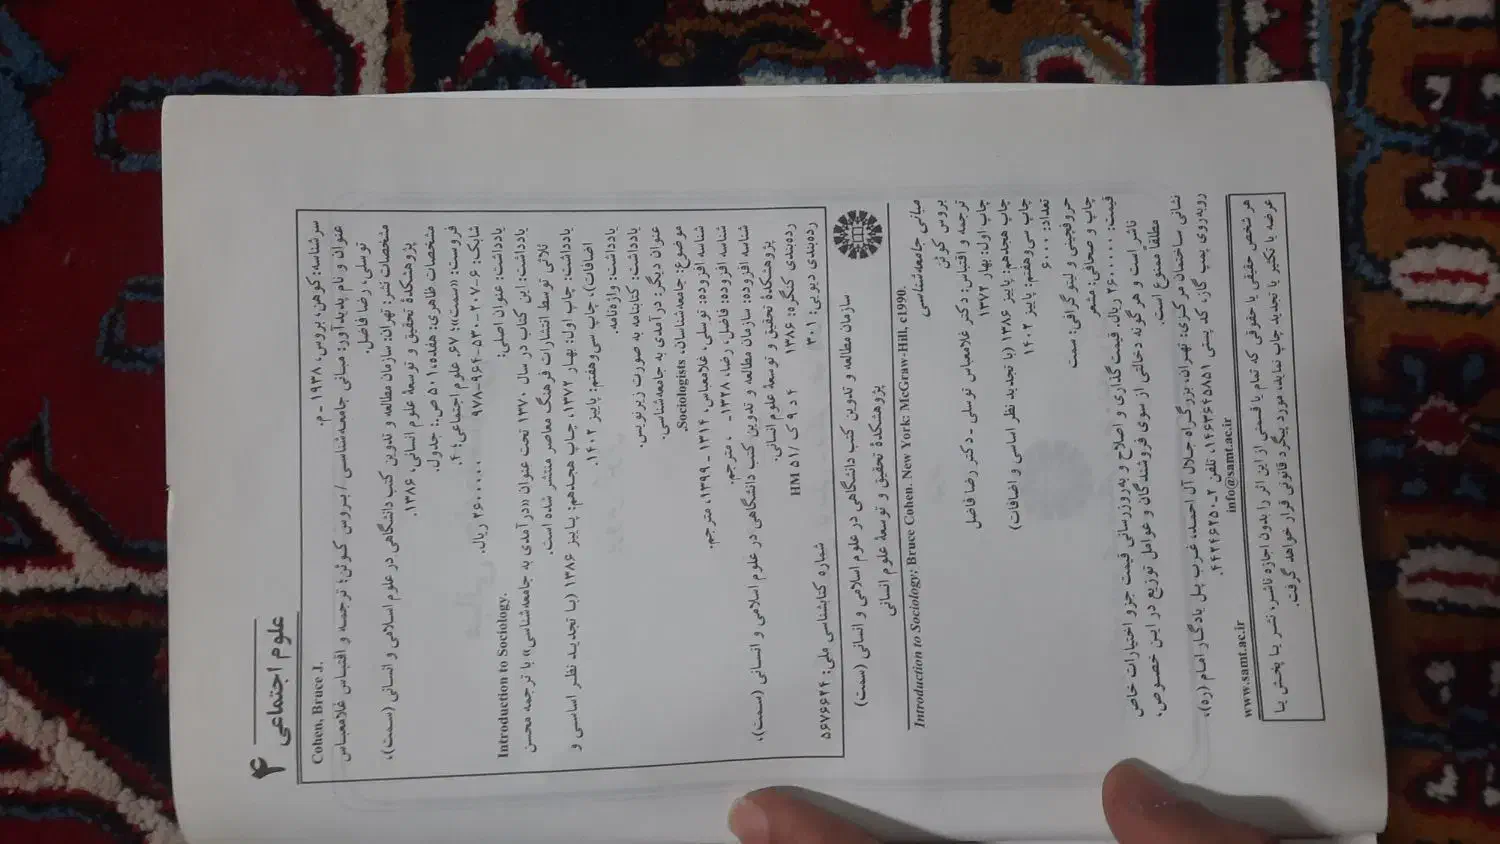 ۴ علوم اجتماعی
سرشناسه: کوهن، بروس، ۱۹۳۸ - م. Cohen, Bruce J.
عنوان و نام پدیدآور: مبانی جامعه‌شناسی / بروس کوئن؛ ترجمه و اقتباس غلامعباس
توسلی، رضا فاضل.
مشخصات نشر: تهران: سازمان مطالعه و تدوین کتب دانشگاهی در علوم اسلامی و انسانی (سمت)،
پژوهشکدهٔ تحقیق و توسعهٔ علوم انسانی، ۱۳۸۶.
مشخصات ظاهری: هفده، ۵۰۱ ص: جدول.
فروست: «سمت»؛ ۶۷. علوم اجتماعی؛ ۴.
شابک: ۶-۲۰۷-۵۳۰-۹۶۴-۹۷۸ ۲۶۰۰۰۰۰ ریال.
یادداشت: عنوان اصلی: Introduction to Sociology.
یادداشت: این کتاب در سال ۱۳۷۰ تحت عنوان «درآمدی به جامعه‌شناسی» با ترجمه محسن
ثلاثی توسط انتشارات فرهنگ معاصر منتشر شده است.
یادداشت: چاپ اول: بهار ۱۳۷۲، چاپ هجدهم: پاییز ۱۳۸۶ (با تجدید نظر اساسی و
اضافات)، چاپ سی‌وهفتم: پاییز ۱۴۰۲.
یادداشت: واژه‌نامه.
یادداشت: کتابنامه به صورت زیرنویس.
عنوان دیگر: درآمدی به جامعه‌شناسی.
موضوع: جامعه‌شناسان، Sociologists.
شناسه افزوده: توسلی، غلامعباس، ۱۳۱۴ - ۱۳۹۹، مترجم.
شناسه افزوده: فاضل، رضا، ۱۳۲۸ - ، مترجم.
شناسه افزوده: سازمان مطالعه و تدوین کتب دانشگاهی در علوم اسلامی و انسانی (سمت)،
پژوهشکدهٔ تحقیق و توسعهٔ علوم انسانی.
رده‌بندی کنگره: ۱۳۸۶ ۴ د ۹ ک / HM ۵۱
رده‌بندی دیویی: ۳۰۱ شماره کتابشناسی ملی: ۵۶۷۶۶۲۴
سازمان مطالعه و تدوین کتب دانشگاهی در علوم اسلامی و انسانی (سمت)
پژوهشکدهٔ تحقیق و توسعهٔ علوم انسانی
Introduction to Sociology; Bruce Cohen. New York: McGraw-Hill, c1990.
مبانی جامعه‌شناسی
بروس کوئن
ترجمه و اقتباس: دکتر غلامعباس توسلی - دکتر رضا فاضل
چاپ اول: بهار ۱۳۷۲
چاپ هجدهم: پاییز ۱۳۸۶ (با تجدید نظر اساسی و اضافات)
چاپ سی‌وهفتم: پاییز ۱۴۰۲
تعداد: ۶۰۰۰
حروفچینی و لیتوگرافی: سمت
چاپ و صحافی: مشعر
قیمت: ۲۶۰۰۰۰۰ ریال. قیمت‌گذاری و اصلاح و به‌روزرسانی قیمت جزو اختیارات خاص
ناشر است و هرگونه دخالتی از سوی فروشندگان و عوامل توزیع در این خصوص،
مطلقاً ممنوع است.
نشانی ساختمان مرکزی: تهران، بزرگراه جلال آل احمد، غرب پل یادگار امام (ره)،
روبه‌روی پمپ گاز، کد پستی ۱۴۶۳۶۴۵۸۵۱، تلفن ۲-۴۴۲۴۶۲۵۰.
www.samt.ac.ir info@samt.ac.ir
هر شخص حقیقی یا حقوقی که تمام یا قسمتی از این اثر را بدون اجازه ناشر، نشر یا پخش یا
عرضه یا تکثیر یا تجدید چاپ نماید، مورد پیگرد قانونی قرار خواهد گرفت.